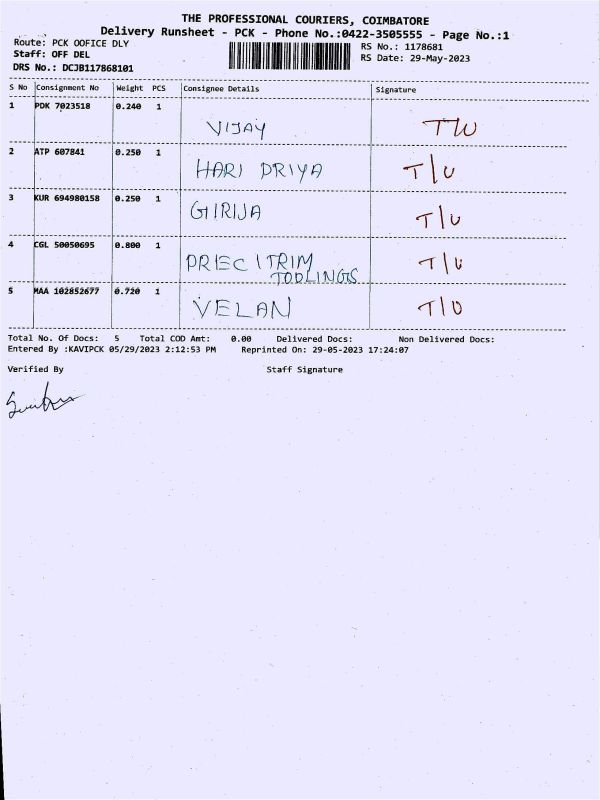 THE PROFESSIONAL COURIERS, COIMBATORE
Delivery Runsheet - PCK - Phone No.:0422-3505555 - Page No.:1
Route: PCK OOFICE DLY
RS No.: 1178681
Staff: OFF DEL
RS Date: 29-May-2023
DRS No.: DCJB117868101
S No Consignment No Weight PCS Consignee Details Signature
1 PDK 7023518 0.240 1 VIJAY T/U
2 ATP 607841 0.250 1 HARI PRIYA T/U
3 KUR 694980158 0.250 1 GIRIJA T/U
4 CGL 50050695 0.800 1 PRECITRIM T/U
TOOLINGS
5 MAA 102852677 0.720 1 VELAN T/U
Total No. Of Docs: 5 Total COD Amt: 0.00 Delivered Docs: Non Delivered Docs:
Entered By :KAVIPCK 05/29/2023 2:12:53 PM Reprinted On: 29-05-2023 17:24:07
Verified By Staff Signature